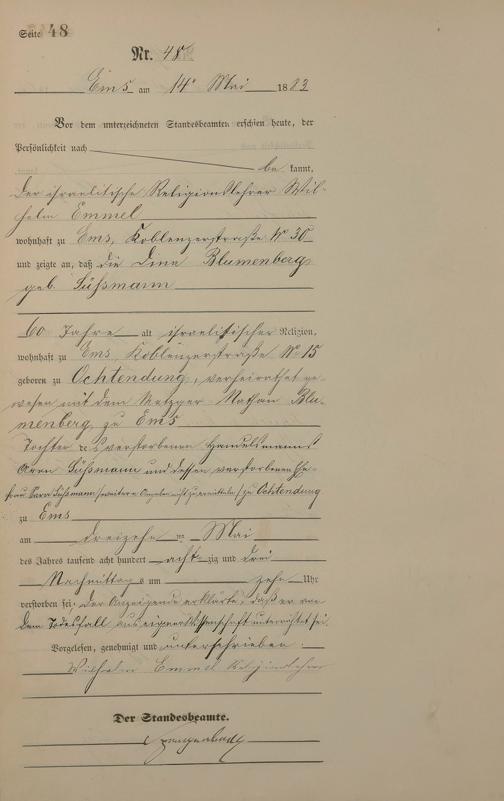 Seite 48
Nr. 48
Ems am 14ten Mai 1883
Vor dem unterzeichneten Standesbeamten erschien heute, der
Persönlichkeit nach
be kannt,
der israelitische Religionslehrer Wil-
helm Emmel
wohnhaft zu Ems, Koblenzerstraße No 30
und zeigte an, daß die Dina Blumenberg
geb. Süßmann
60 Jahre alt israelitischer Religion,
wohnhaft zu Ems Koblenzerstraße No 15
geboren zu Ochtendung, verheirathet ge-
wesen mit dem Metzger Nathan Blu-
menberg, zu Ems
Tochter des verstorbenen Handelsmannes
Aron Süßmann und dessen verstorbenen Ehe-
frau Sara Süßmann (weitere Angaben nicht zu ermitteln) zu Ochtendung
zu Ems
am dreizehnten Mai
des Jahres tausend acht hundert acht zig und drei
Nachmittags um zehn Uhr
verstorben sei; der Anzeigende erklärte, daß er von
dem Todesfall aus eigener Wissenschaft unterrichtet sei.
Vorgelesen, genehmigt und unterschrieben
Wilhelm Emmel Religionslehrer
Der Standesbeamte.